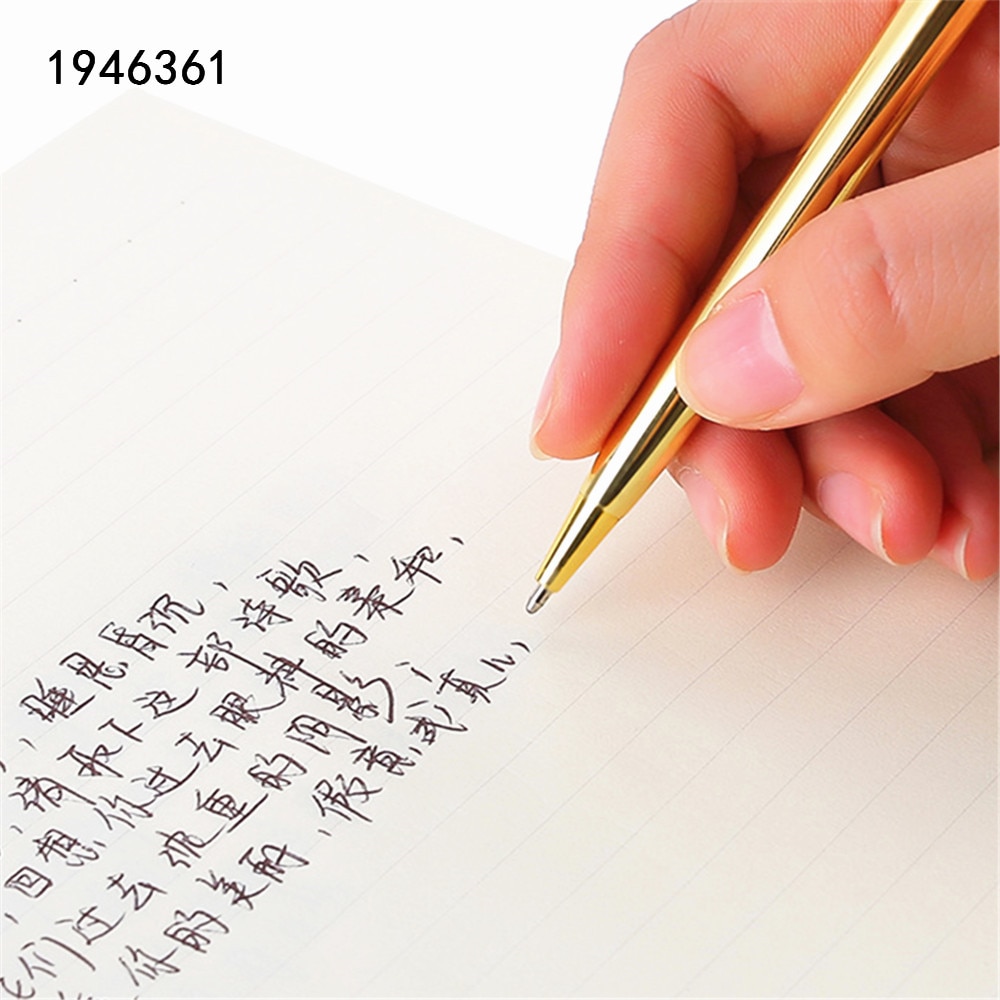 1946361
，睡思昏沉，
，请取下这部诗歌，
，回想你过去眼神的柔和，
它们过去的重的阴影；
你的美丽，假意或真心，